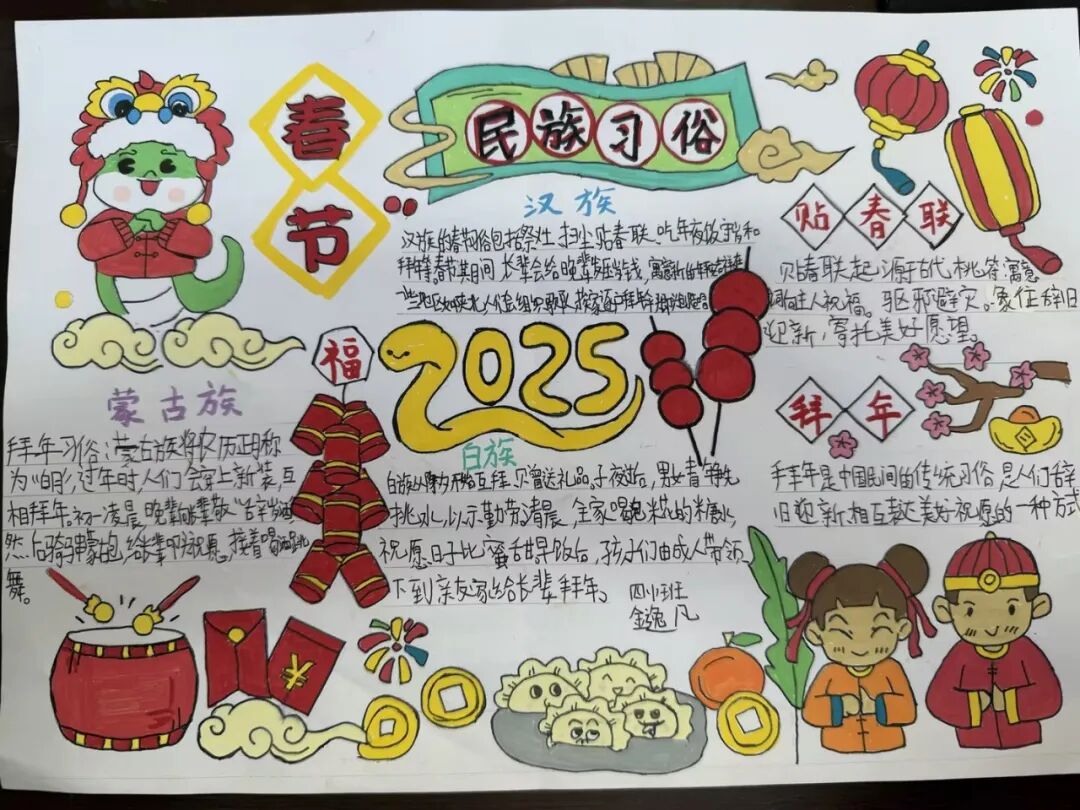 春节
民族习俗
汉族
汉族的春节习俗包括祭灶、扫尘、贴春联、吃年夜饭、守岁和
拜年等。春节期间，长辈会给晚辈压岁钱，寓意
贴春联
贴春联起源于古代桃符，寓意
祝福。驱邪避灾。象征辞旧
迎新，寄托美好愿望。
福
2025
蒙古族
拜年习俗：蒙古族将农历正月称
为“白月”，过年时，人们会穿上新装互
相拜年。初一凌晨，晚辈向长辈敬“辞岁酒”
然后骑马串蒙古包，给长辈叩头祝愿，接着喝酒跳
舞。
白族
互拜，赠送礼品。子夜过后，男女青年争先
挑水，以示勤劳。清晨，全家喝泡米花的糖水，
祝愿日子比蜜甜。早饭后，孩子们由成人带领
下到亲友家给长辈拜年。
拜年
拜年是中国民间的传统习俗，是人们辞
旧迎新、相互表达美好祝愿的一种方式
四（1）班
凡
¥